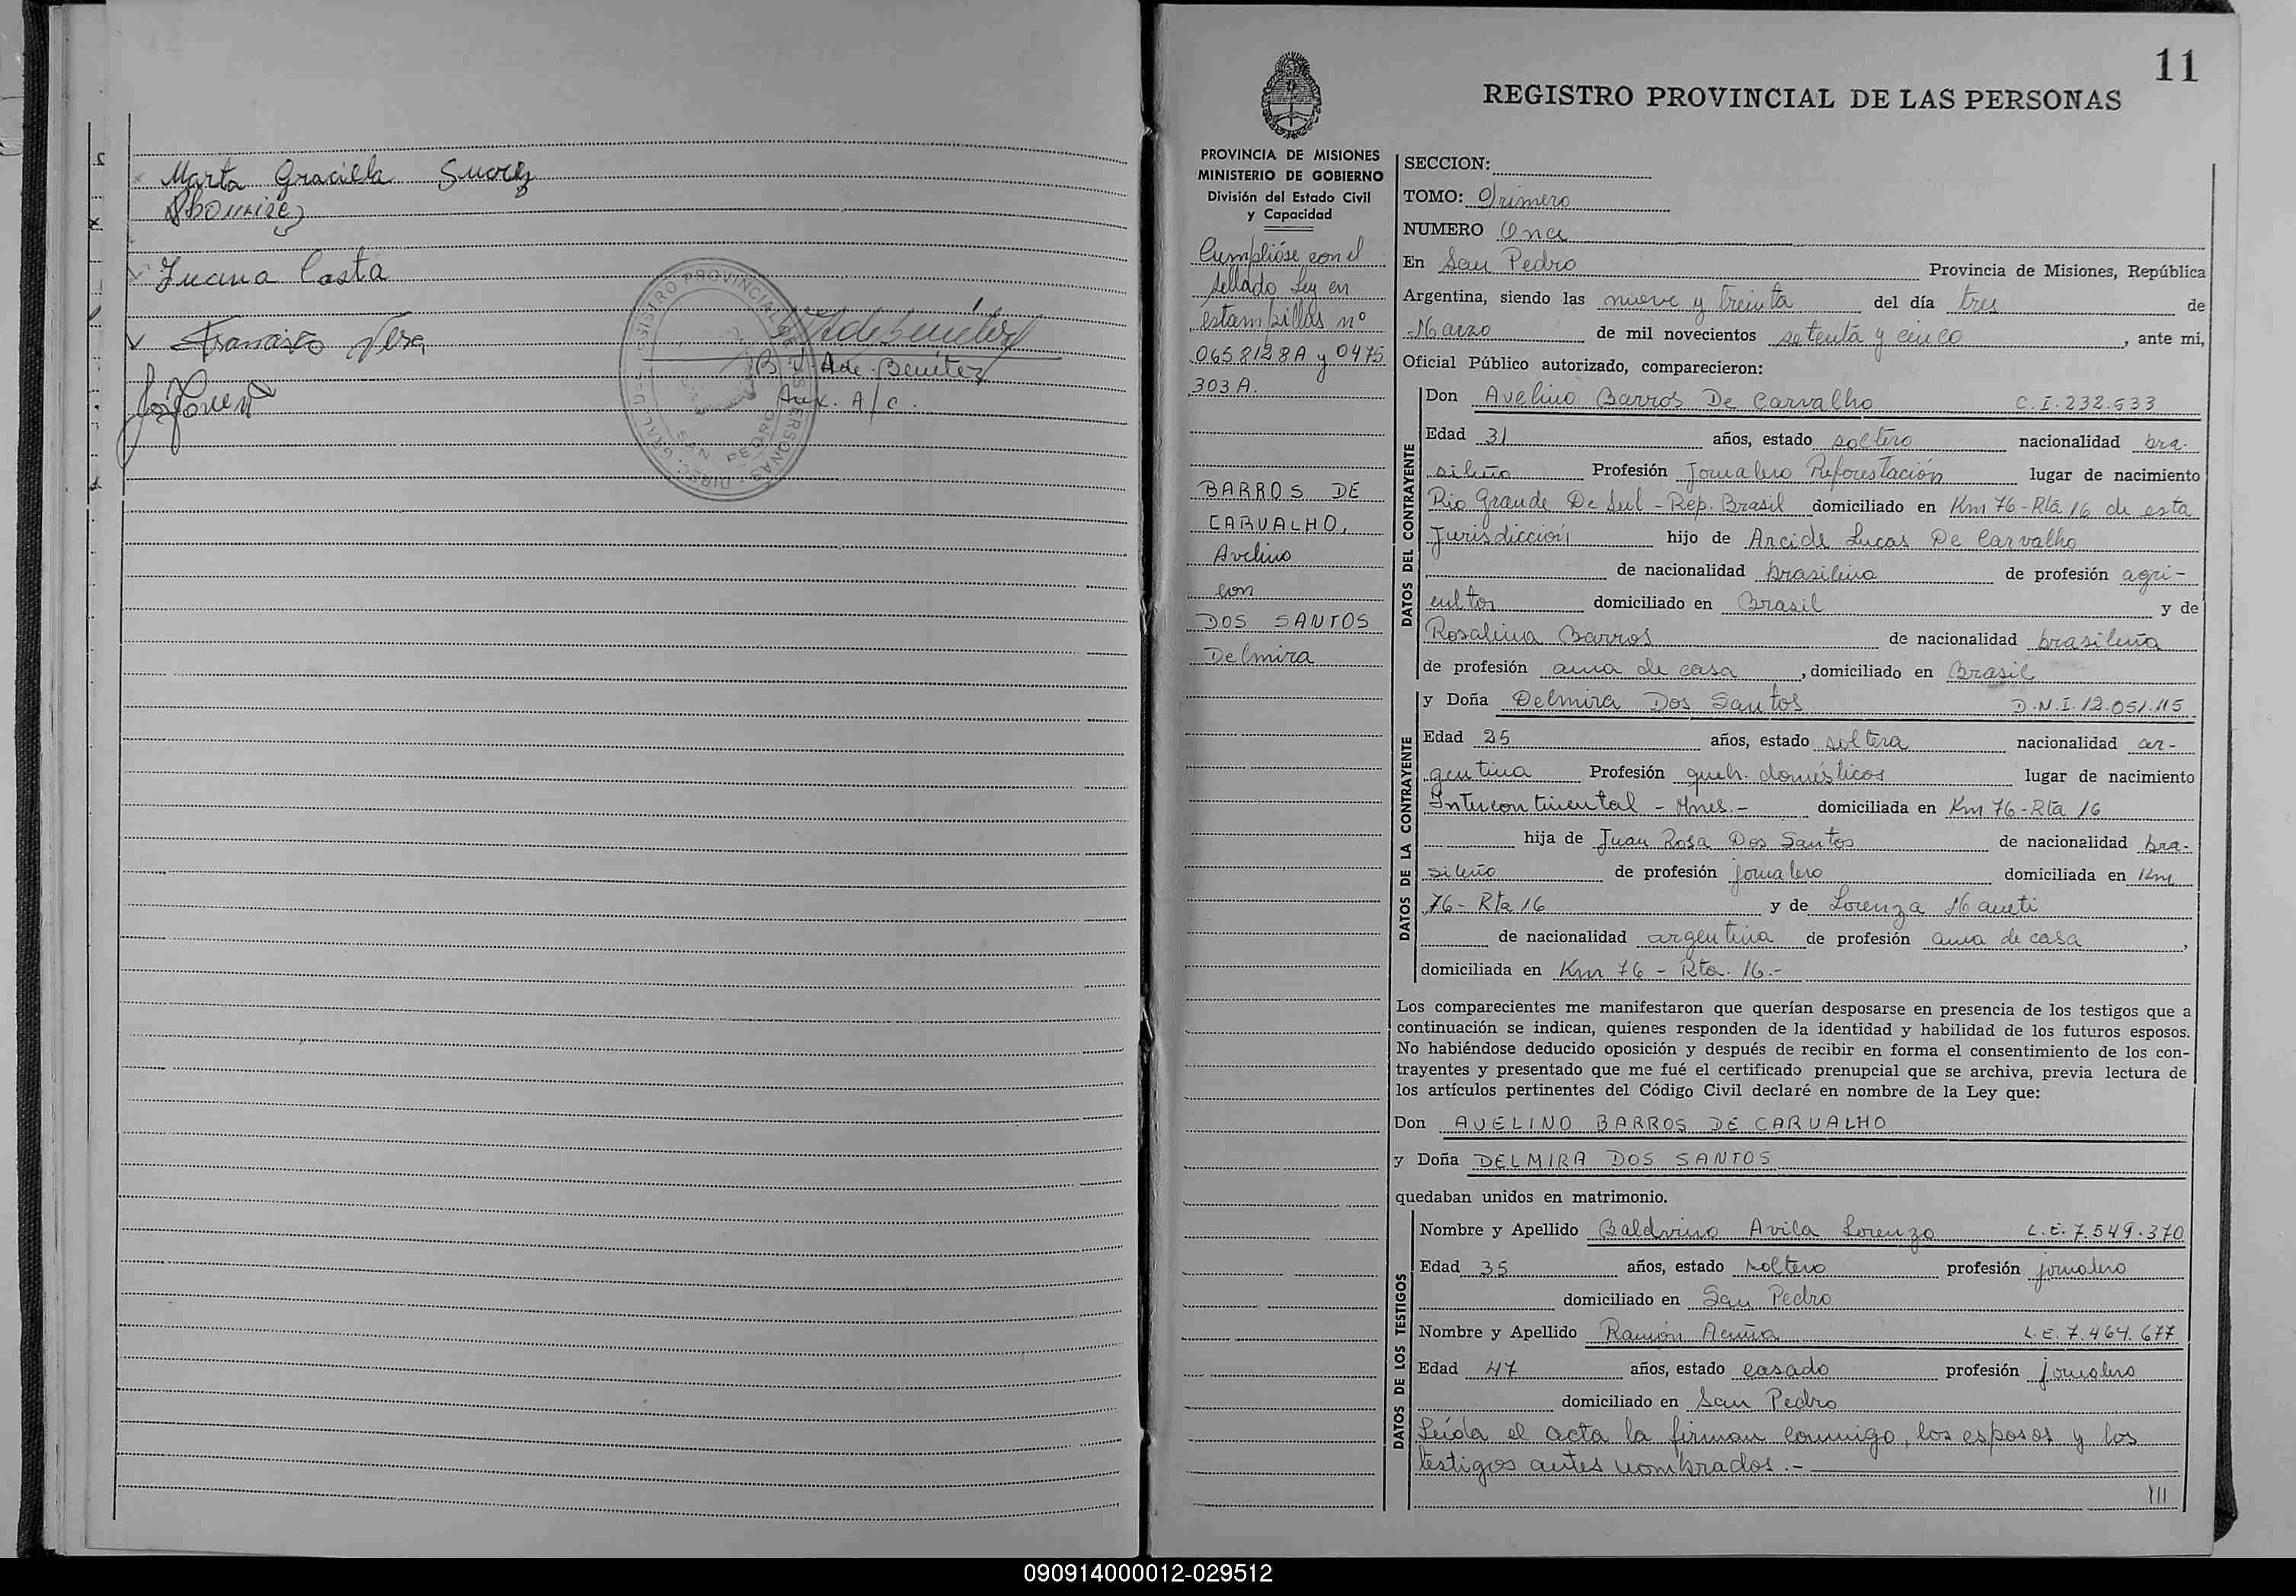 Marta Graciela Suarez
Juana Costa
Francisco Vera
B. V. A de Benítez
Aux. A/C.
REGISTRO PROVINCIAL DE LAS PERSONAS
SAN PEDRO
11
REGISTRO PROVINCIAL DE LAS PERSONAS
PROVINCIA DE MISIONES
MINISTERIO DE GOBIERNO
División del Estado Civil
y Capacidad
Cumplióse con el
sellado Ley en
estampillas nº
0658128A y 0475
303 A.
BARROS DE
CARVALHO,
Avelino
con
DOS SANTOS
Delmira
SECCION:
TOMO: Primero
NUMERO Once
En San Pedro Provincia de Misiones, República
Argentina, siendo las nueve y treinta del día tres de
Marzo de mil novecientos setenta y cinco, ante mi,
Oficial Público autorizado, comparecieron:
DATOS DEL CONTRAYENTE
Don Avelino Barros De Carvalho C.I. 232.533
Edad 31 años, estado soltero nacionalidad bra-
sileño Profesión Jornalero Reforestación lugar de nacimiento
Rio Grande De Sul - Rep. Brasil domiciliado en Km 76 - Rta 16 de esta
Jurisdicción hijo de Arcide Lucas De Carvalho
de nacionalidad brasilina de profesión agri-
cultor domiciliado en Brasil y de
Rosalina Barros de nacionalidad brasileña
de profesión ama de casa, domiciliado en Brasil
DATOS DE LA CONTRAYENTE
y Doña Delmira Dos Santos D.N.I. 12.051.115
Edad 25 años, estado soltera nacionalidad ar-
gentina Profesión queh. domésticos lugar de nacimiento
Intercontinental - Mnes. - domiciliada en Km 76 - Rta 16
hija de Juan Rosa Dos Santos de nacionalidad bra-
sileño de profesión jornalero domiciliada en Km
76 - Rta 16 y de Lorenza
de nacionalidad argentina de profesión ama de casa,
domiciliada en Km 76 - Rta. 16.-
Los comparecientes me manifestaron que querían desposarse en presencia de los testigos que a
continuación se indican, quienes responden de la identidad y habilidad de los futuros esposos.
No habiéndose deducido oposición y después de recibir en forma el consentimiento de los con-
trayentes y presentado que me fué el certificado prenupcial que se archiva, previa lectura de
los artículos pertinentes del Código Civil declaré en nombre de la Ley que:
Don AVELINO BARROS DE CARVALHO
y Doña DELMIRA DOS SANTOS
quedaban unidos en matrimonio.
DATOS DE LOS TESTIGOS
Nombre y Apellido Baldvino Avila Lorenzo L.E. 7.549.370
Edad 35 años, estado soltero profesión jornalero
domiciliado en San Pedro
Nombre y Apellido Ramón Acuña L.E. 7.464.677
Edad 47 años, estado casado profesión jornalero
domiciliado en San Pedro
Leída el acta la firman conmigo, los esposos y los
testigos antes nombrados.-
///
090914000012-029512